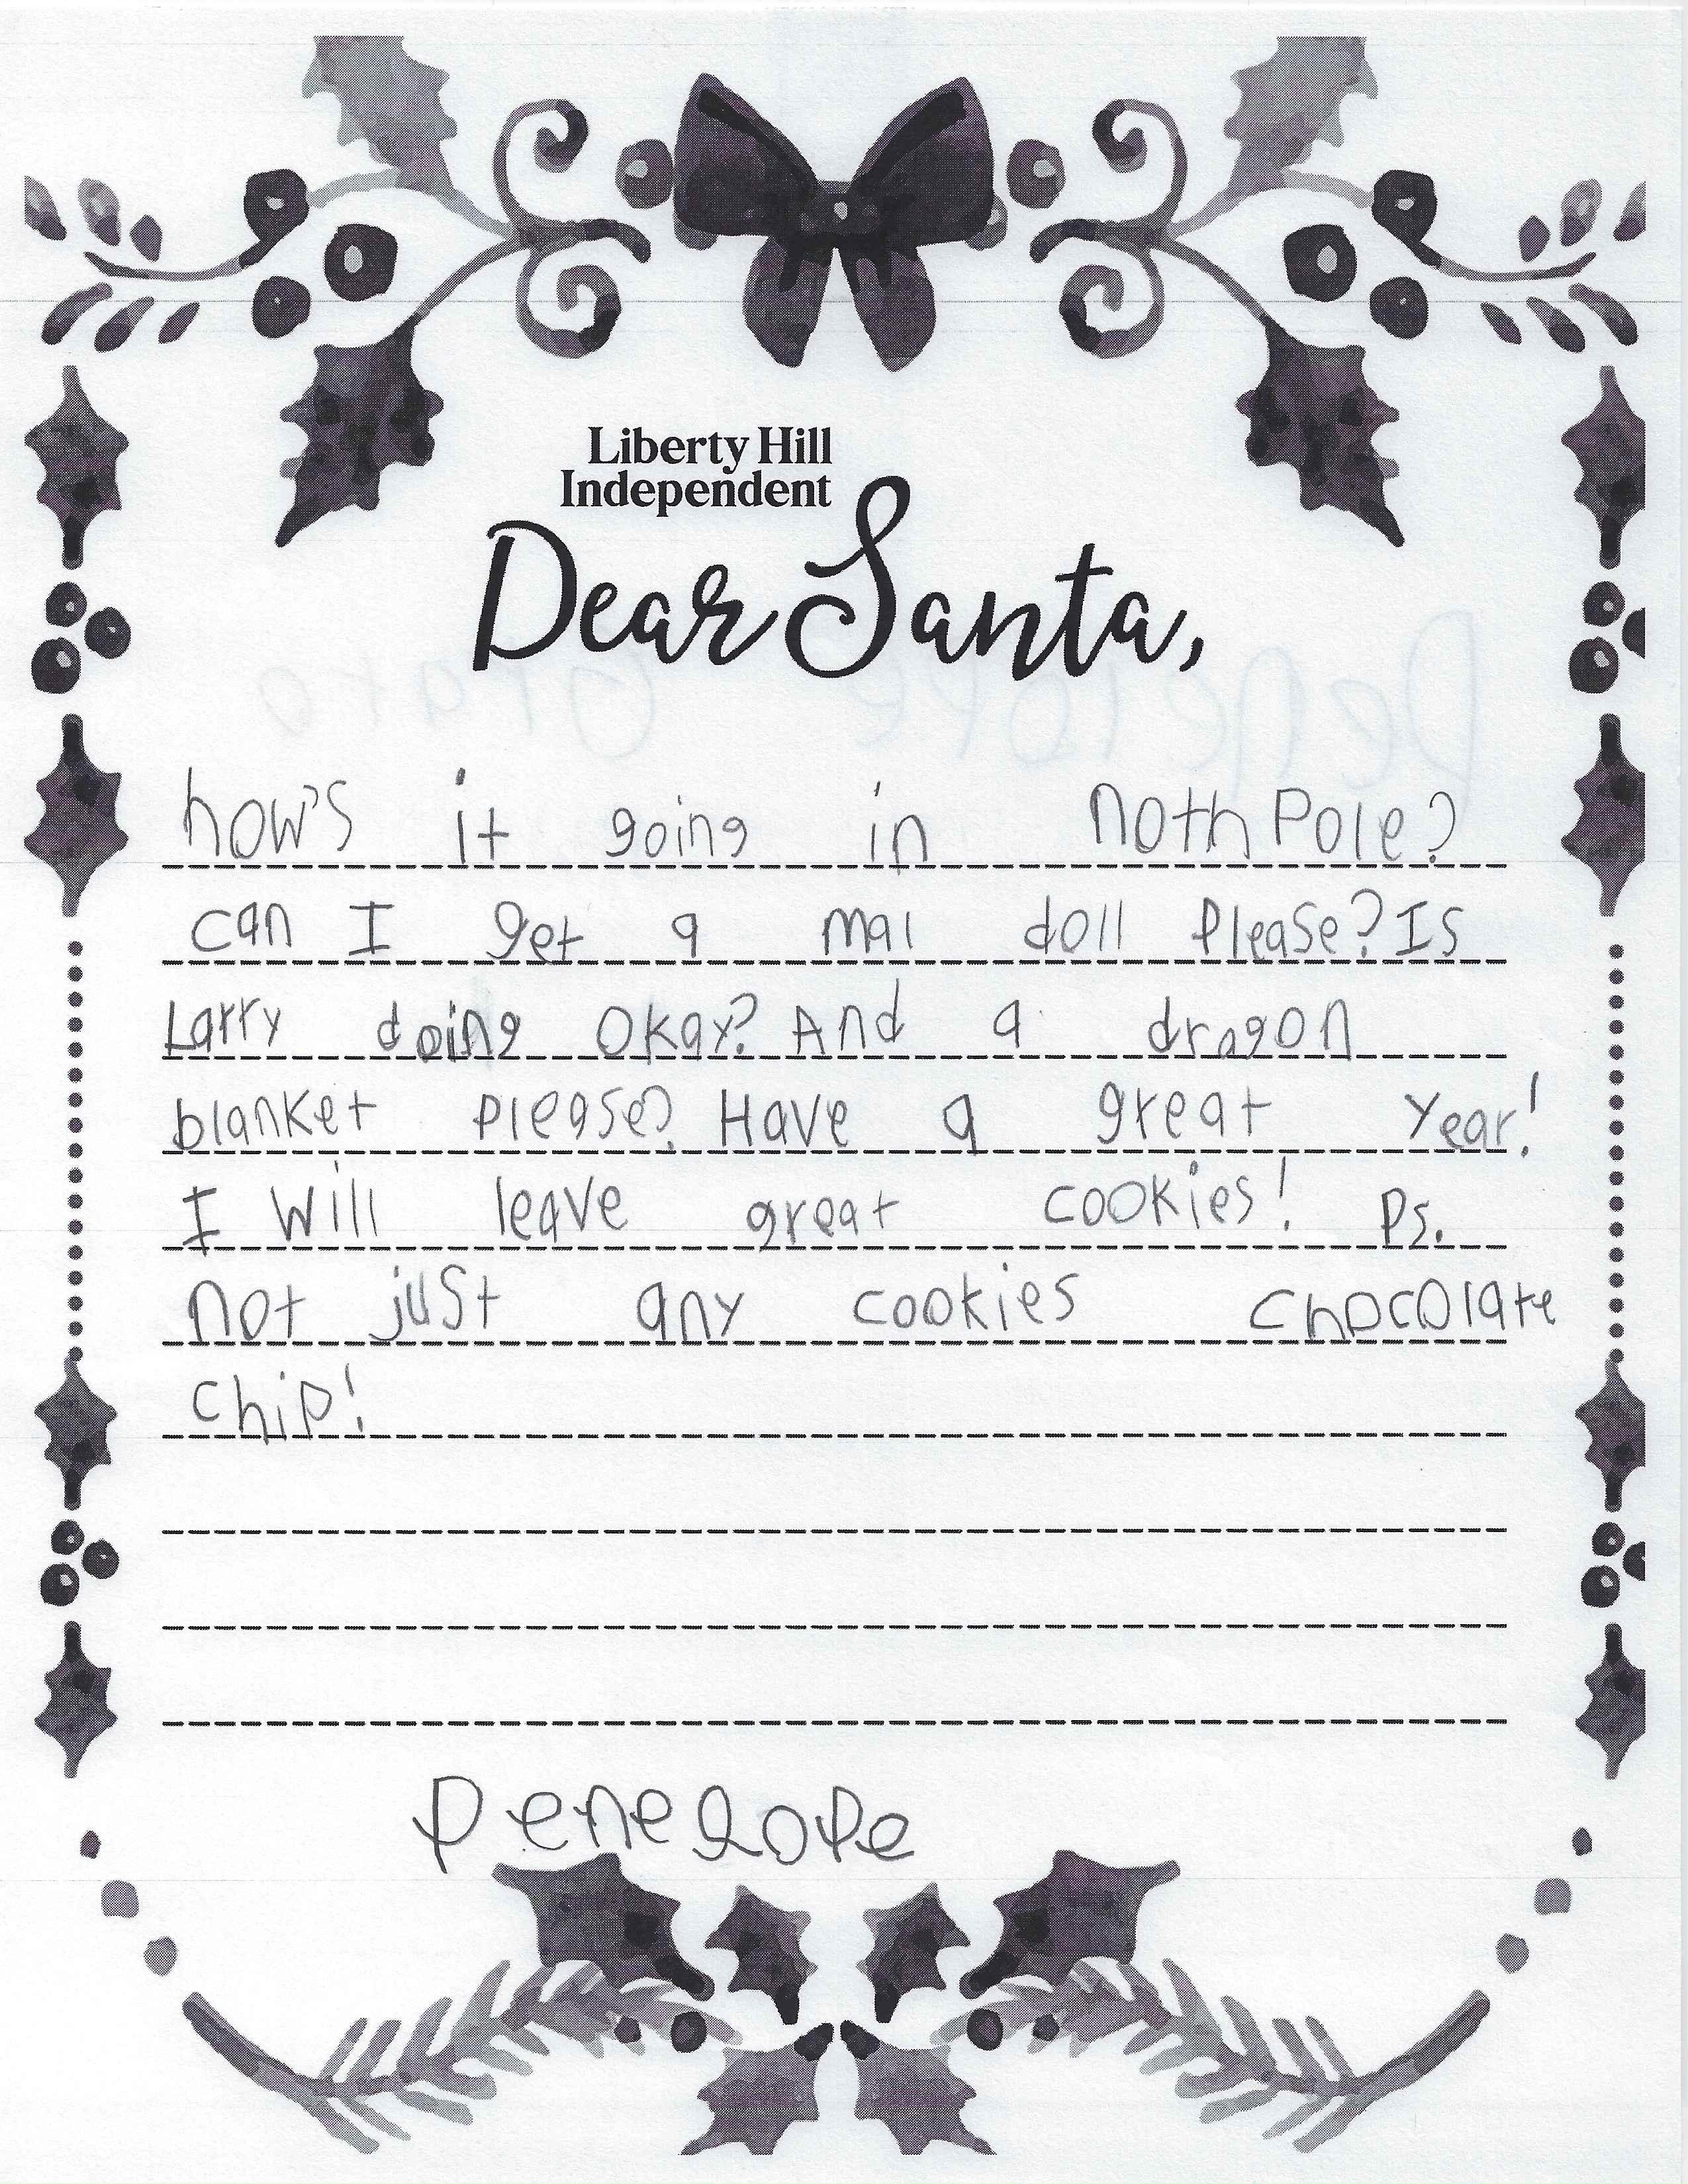 Liberty Hill
Independent
Dear Santa,
how's it going in noth Pole?
can I get a mal doll Please? Is
Larry doing Okay? And a dragon
blanket please? Have a great Year!
I will leave great cookies! Ps.
not just any cookies Chocolate
chip!
Penelope